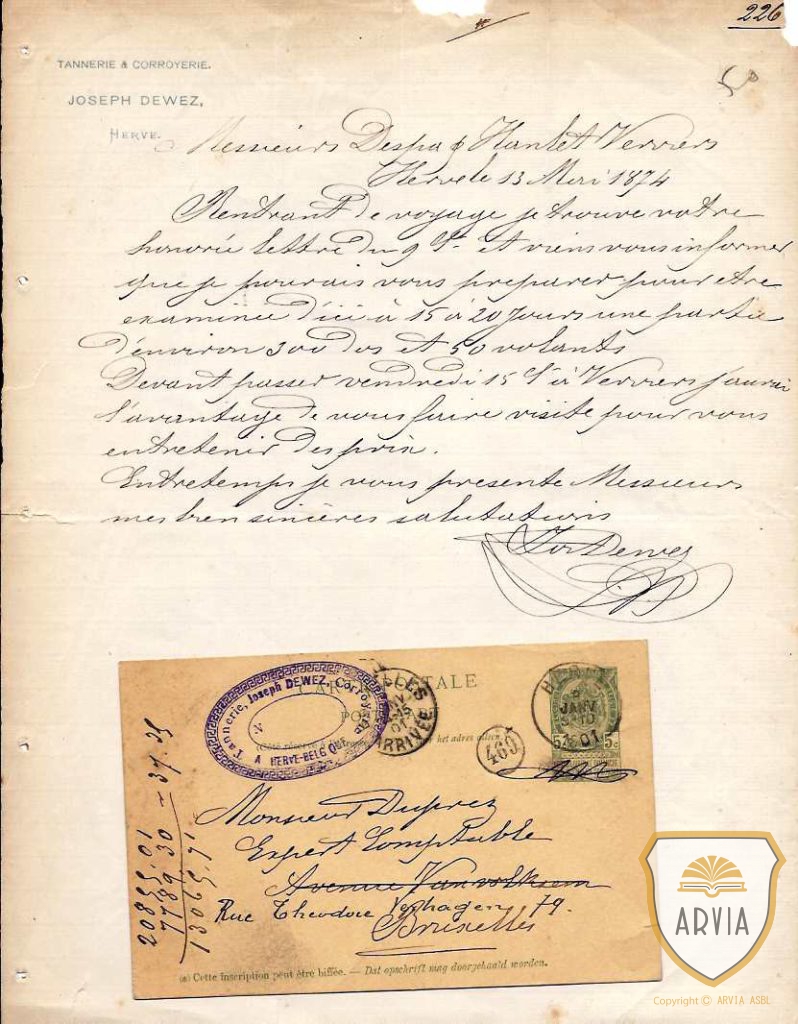 226
50
TANNERIE & CORROYERIE.
JOSEPH DEWEZ,
HERVE.
Messieurs Despa & Hanlet Verviers
Herve le 13 Mai 1874
Rentrant de voyage je trouve votre
honorée lettre du 9 Ct et viens vous informer
que je pourais vous preparer pour etre
examinée d'ici à 15 à 20 Jours une partie
d'environ 300 dos et 50 volants
Devant passer vendredi 15 Ct à Verviers j'aurai
l'avantage de vous faire visite pour vous
entretenir des prix.
Entretemps je vous presente Messieurs
mes bien sincères salutations
Jos Dewez
CARTE POSTALE
Tannerie, Joseph DEWEZ, Corroyerie
N
A HERVE-BELGIQUE
ARRIVÉE
(Côté réservé à
het adres alleen
469
JANV
1901
5c 5c
Monsieur Duprez
Expert Comptable
Avenue Van volksem
Rue Theodore Verhagen 79.
Bruxelles
20855.01
7789.30 - 37.35
13065.71
(a) Cette inscription peut être biffée. — Dat opschrift mag doorgehaald worden.
ARVIA
Copyright © ARVIA ASBL